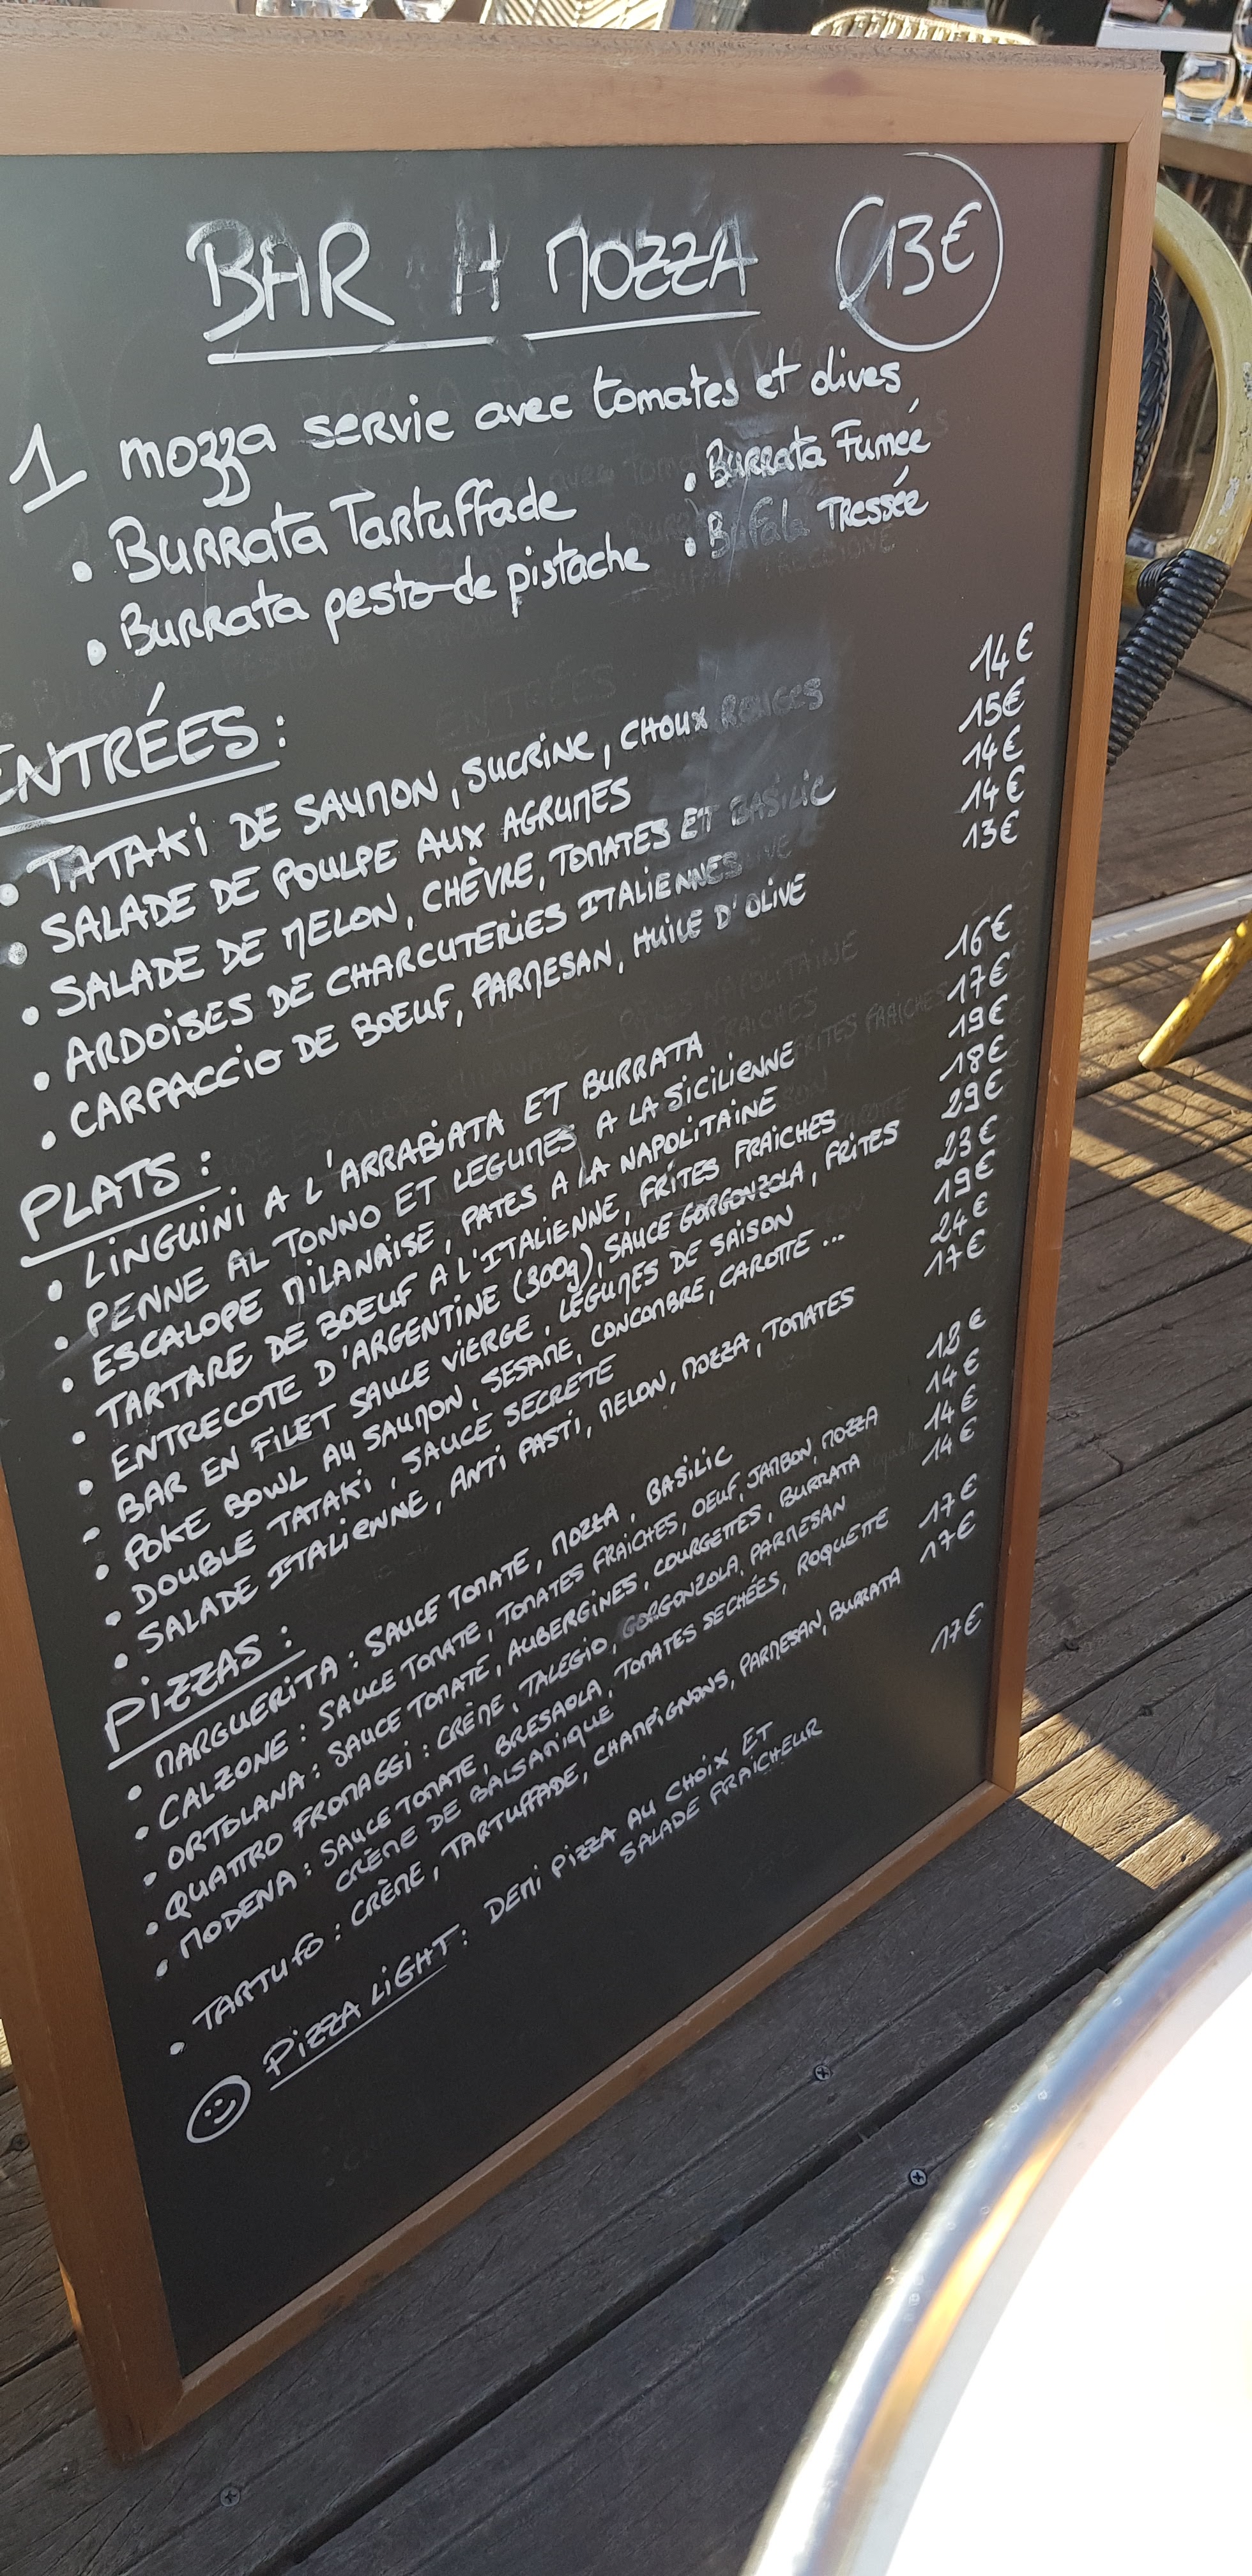 BAR A MOZZA 13€
1 mozza servie avec tomates et olives
• Burrata Tartuffade • Burrata Fumée
• Burrata pesto de pistache • Bufala Tressée
ENTRÉES :
• TATAKI DE SAUMON, SUCRINE, CHOUX ROUGES 14€
• SALADE DE POULPE AUX AGRUMES 15€
• SALADE DE MELON, CHÈVRE, TOMATES ET BASILIC 14€
• ARDOISES DE CHARCUTERIES ITALIENNES 14€
• CARPACCIO DE BOEUF, PARMESAN, HUILE D'OLIVE 13€
PLATS :
• LINGUINI A L'ARRABIATA ET BURRATA 16€
• PENNE AL TONNO ET LEGUMES A LA SICILIENNE 17€
• ESCALOPE MILANAISE, PATES A LA NAPOLITAINE 19€
• TARTARE DE BOEUF A L'ITALIENNE, FRITES FRAICHES 18€
• ENTRECOTE D'ARGENTINE (300g), SAUCE GORGONZOLA, FRITES 29€
• BAR EN FILET SAUCE VIERGE, LEGUMES DE SAISON 23€
• POKE BOWL AU SAUMON, SESAME, CONCOMBRE, CAROTTE ... 19€
• DOUBLE TATAKI, SAUCE SECRETE 24€
• SALADE ITALIENNE, ANTI PASTI, MELON, MOZZA, TOMATES 17€
PIZZAS :
• MARGUERITA : SAUCE TOMATE, MOZZA, BASILIC 12€
• CALZONE : SAUCE TOMATE, TOMATES FRAICHES, OEUF, JAMBON, MOZZA 14€
• ORTOLANA : SAUCE TOMATE, AUBERGINES, COURGETTES, BURRATA 14€
• QUATTRO FROMAGGI : CRÈME, TALEGIO, GORGONZOLA, PARMESAN 14€
• MODENA : SAUCE TOMATE, BRESAOLA, TOMATES SECHÉES, ROQUETTE 17€
CRÈME DE BALSAMIQUE
• TARTUFO : CRÈME, TARTUFFADE, CHAMPIGNONS, PARMESAN, BURRATA 17€
PIZZA LIGHT : DEMI PIZZA AU CHOIX ET 17€
SALADE FRAICHEUR